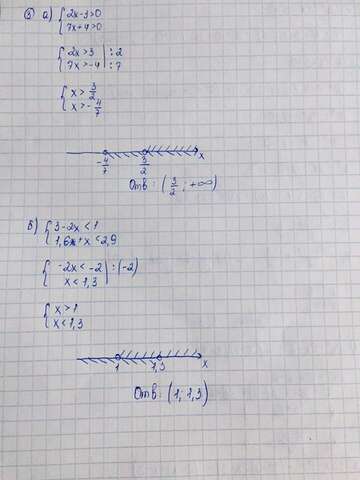 ③ а) { 2x-3>0
7x+4>0
{ 2x>3 | :2
7x>-4 | :7
{ x> 3/2
x>- 4/7
-4/7 3/2 x
Отв: (3/2; +∞)
б) { 3-2x<1
1,6+x<2,9
{ -2x<-2 | :(-2)
x<1,3
{ x>1
x<1,3
1 1,3 x
Отв: (1; 1,3)